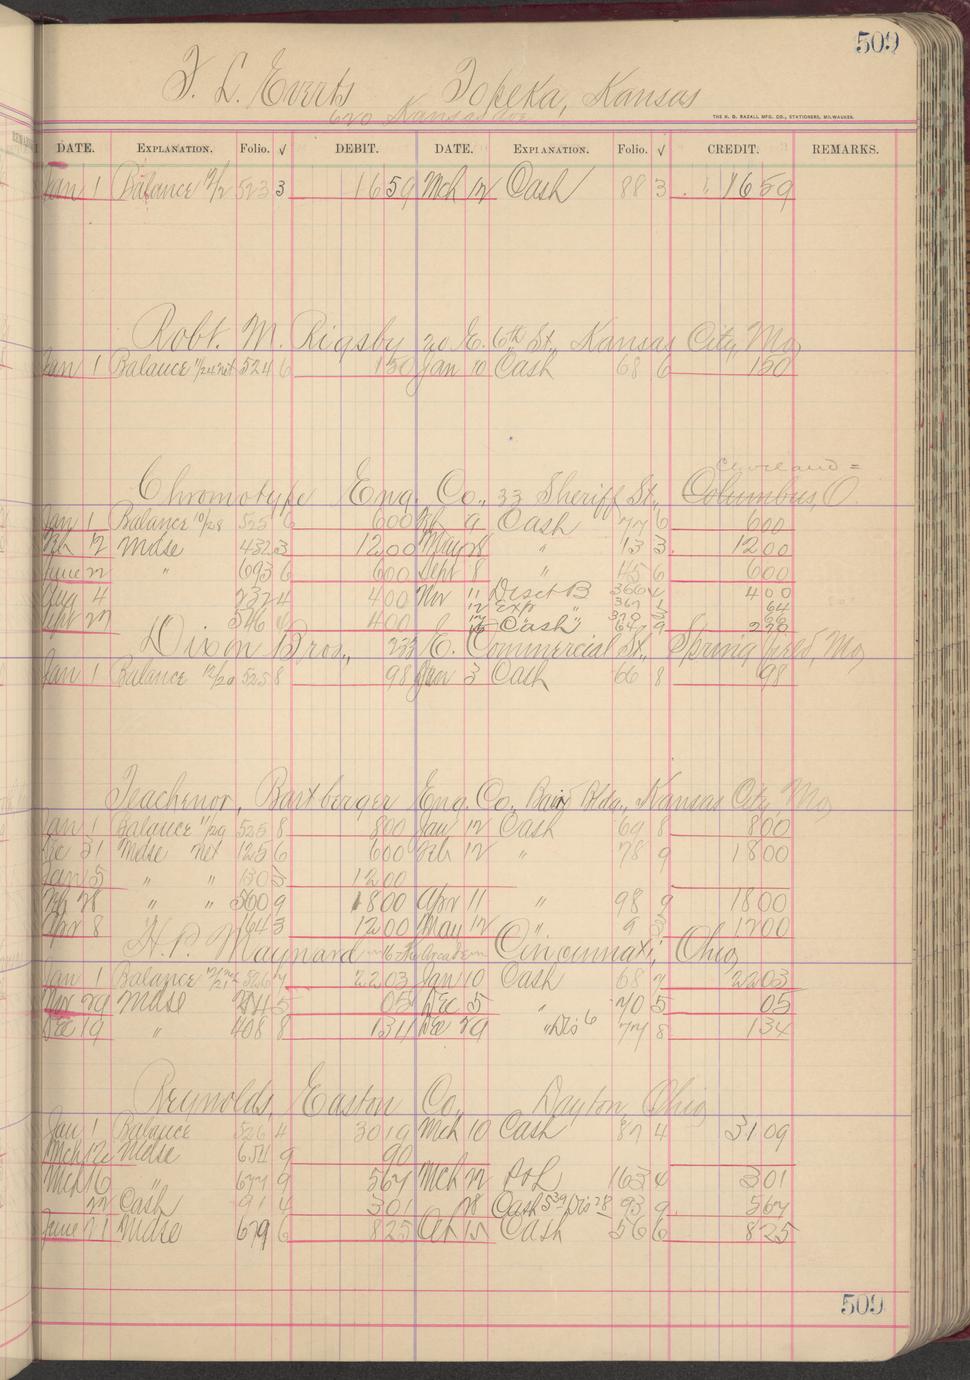 509
F. L. Everts Topeka, Kansas
620 Kansas Ave
THE H. G. RAZALL MFG. CO., STATIONERS, MILWAUKEE.
DATE. EXPLANATION. Folio. √ DEBIT. DATE. EXPLANATION. Folio. √ CREDIT. REMARKS.
Jan 1 Balance 523 3 1659 Mch 12 Cash 88 3 1659
Robt. M. Rigsby 20 E. 6th St., Kansas City, Mo,
Jan 1 Balance 11/24 net 524 6 150 Jan 10 Cash 68 6 150
Cleveland =
Chromotype Eng. Co., 33 Sheriff St., Columbus, O.
Jan 1 Balance 10/28 525 6 600 Feb 9 Cash 77 6 600
Feb 12 Mdse 432 3 1200 May 28 " 13 3 1200
June 22 " 693 6 600 Sept 8 " 45 6 600
Aug 4 232 4 400 Nov 11 Disct B 366 4 00
12 Exp " 367 64
Sept 27 546 400 Cash 270
Dixon Bros., 233 E. Commercial St., Springfield, Mo,
Jan 1 Balance 12/20 525 8 98 Jan 3 Cash 66 8 98
Teachenor, Bartberger Eng. Co., Bldg., Kansas City, Mo,
Jan 1 Balance 11/29 525 8 800 Jan 12 Cash 69 8 800
Dec 31 Mdse net 125 6 600 Feb 12 " 78 9 1800
Jan 5 " " 130 3 1200
Feb 28 " " 560 9 1800 Apr 11 " 98 9 1800
Apr 8 164 3 1200 May 12 " 9 3 1200
H. P. Maynard Cincinnati, Ohio,
Jan 1 Balance 526 7 2203 Jan 10 Cash 68 7 2203
Nov 29 Mdse 5 05 Dec 5 " 70 5 05
Dec 19 " 408 8 134 Dec 29 " Dis 6 77 8 134
Reynolds, Easton Co., Dayton, Ohio
Jan 1 Balance 526 4 3019 Mch 10 Cash 87 4 3109
Mch 12 Mdse 654 9 90
Mch 16 " 677 9 567 Mch 22 P&L 163 4 301
22 Cash 91 4 301 28 Cash 539 Dis 28 93 9 567
June 21 Mdse 679 6 825 Oct 15 Cash 56 6 825
509